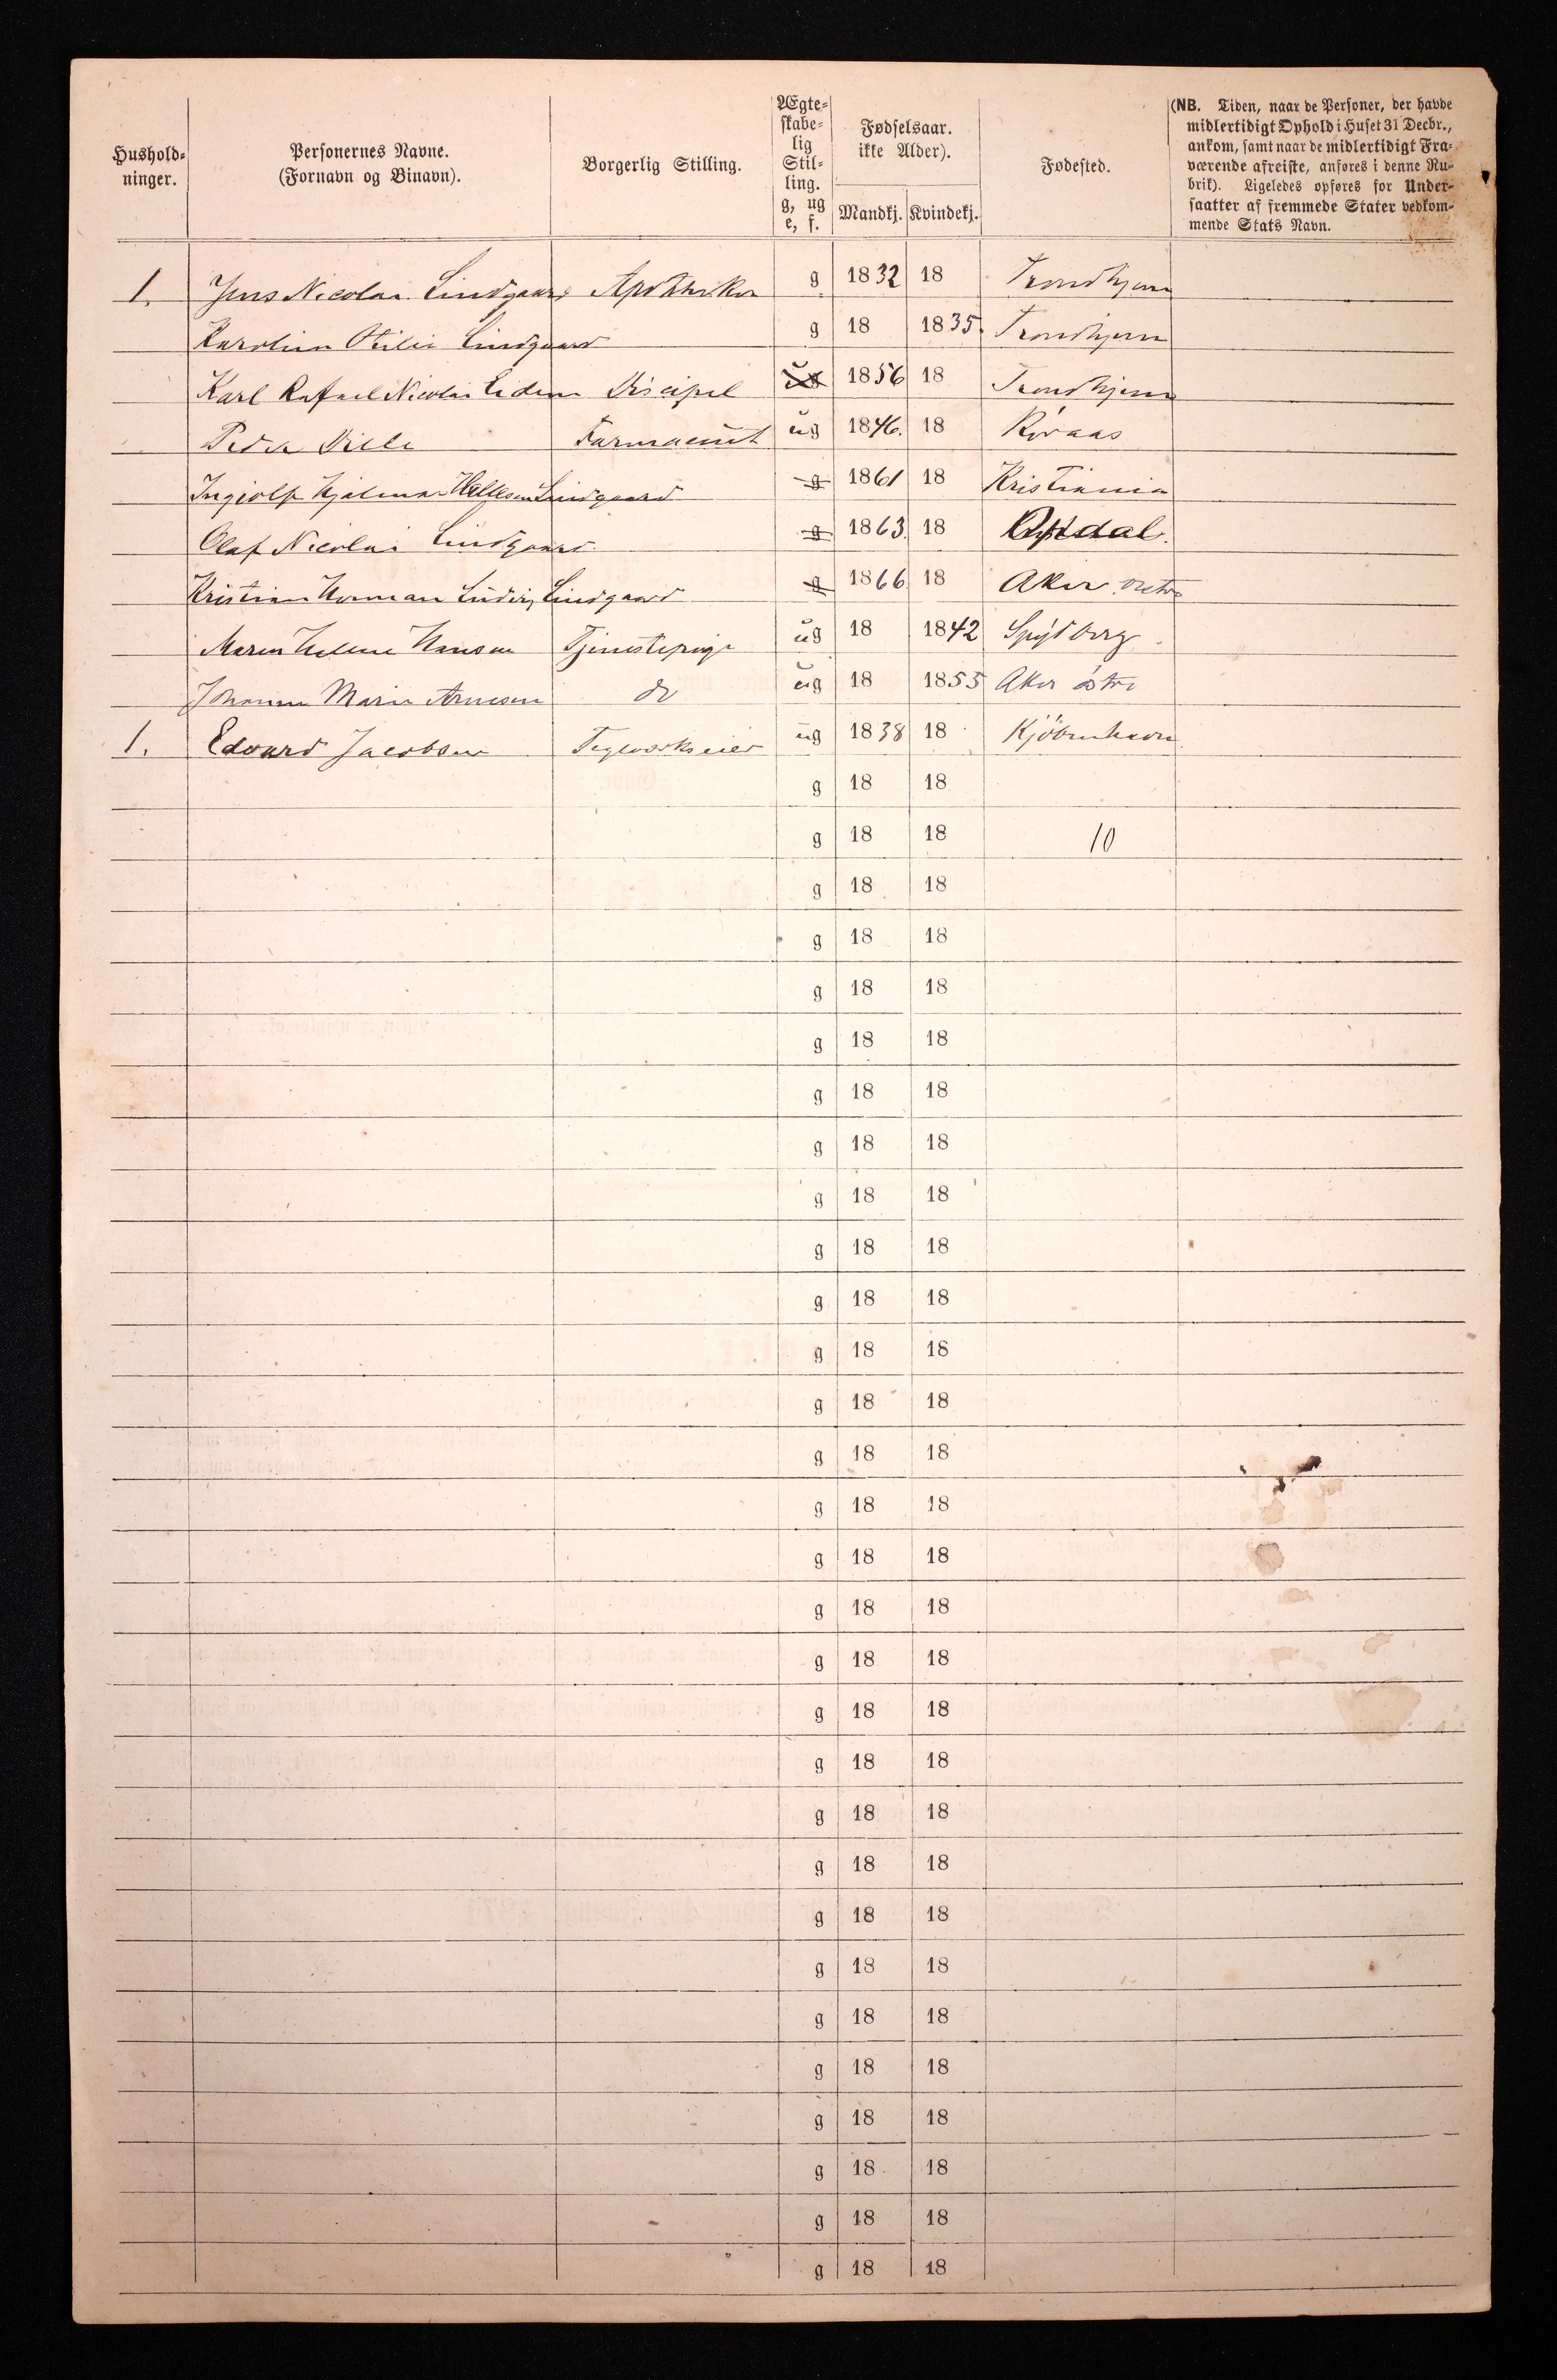 Hushold-
ninger.
Personernes Navne.
(Fornavn og Binavn).
Borgerlig Stilling.
Ægte-
skabe-
lig
Stil-
ling.
g, ug
e, f.
Fødselsaar.
ikke Alder).
Mandkj. Kvindekj.
Fødested.
(NB. Tiden, naar de Personer, der havde
midlertidigt Ophold i Huset 31 Decbr.,
ankom, samt naar de midlertidigt Fra-
værende afreiste, anføres i denne Ru-
brik). Ligeledes opføres for Under-
saatter af fremmede Stater vedkom-
mende Stats Navn.
1. Jens Nicolai Lindgaard Apotheker g 1832 18 Trondhjem
Karoline Otilie Lindgaard g 18 1835. Trondhjem
Karl Rafael Nicolai Discipel ug 1856 18 Trondhjem
Peder Farmaceut ug 1846. 18 Röraas
Ingiolf Hjalmar Lindgaard g 1861 18 Kristiania
Olaf Nicolai Lindgaard g 1863. 18
Kristian Herman Ludvig Lindgaard g 1866 18 Aker
Maren Helene Hansen Tjenestepige ug 18 1842 Spydberg
Johanne Marie Arnesen do ug 18 1855 Aker östre
1. Edvard Jacobsen Teglværkseier ug 1838 18 Kjöbenhavn
g 18 18
g 18 18 10
g 18 18
g 18 18
g 18 18
g 18 18
g 18 18
g 18 18
g 18 18
g 18 18
g 18 18
g 18 18
g 18 18
g 18 18
g 18 18
g 18 18
g 18 18
g 18 18
g 18 18
g 18 18
g 18 18
g 18 18
g 18 18
g 18 18
g 18 18
g 18 18
g 18 18
g 18 18
g 18 18
g 18 18